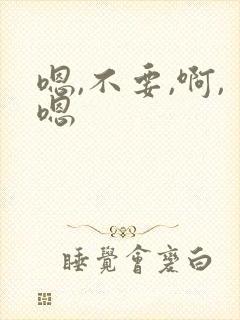 嗯,不要,啊,
嗯
睡覺會變白